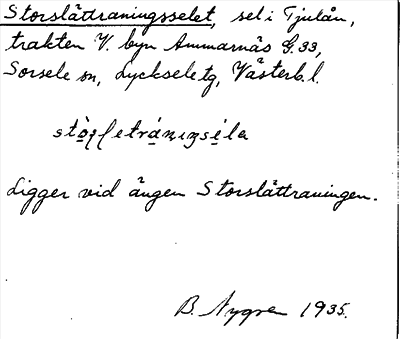 Storslåttraningsselet, sel i Tjulån,
trakten V. byn Ammarnäs G. 33,
Sorsele sn, Lycksele tg, Västerb. l.
Ligger vid ängen Storslåttraningen.
B. Nygren 1935.